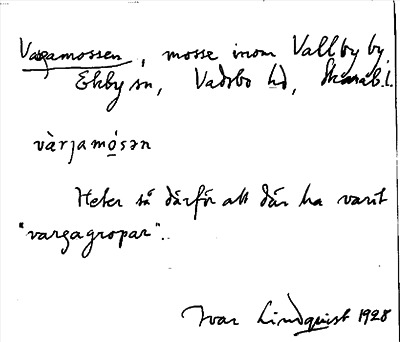 Vargamossen, mosse inom Vallby by,
Ekby sn, Vadsbo hd, Skarab. l.
vàrjamó̲sən
Heter så därför att där ha varit
"vargagropar".
Ivar Lindquist 1928